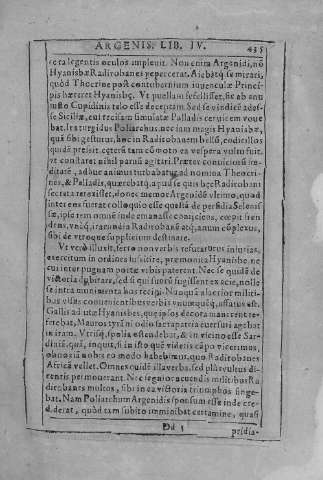 ARGENIS. LIB. IV. 435
cera legentis oculos impleuit. Non enim Argenidi, nõ
Hyanisbæ Radirobanes pepercerat. Aiebatq́; se mirari,
quòd Theocrine post contubernium iuuenculæ Princi-
pis hæreret Hyanisbę. Vt puellam fefellisset, sic ab anu
iusto Cupidinis telo esse deceptam. Sed se vindicẽ adesse
Siciliæ, cui
bat. Ita turgidus Poliarchus, nec iam magis Hyanisbæ,
quã sibi gesturus, hoc in Radirobanem bellũ,
quidẽ presit. cęterà tam cõmoto ea vespera vultu fuit,
vt constaret nihil parũ agitari. Præter conuicia
, adhuc animus turbabatur ad nomina Theocri-
nes, & Palladis, quærebatq́; apud se quis hęc Radirobani
secreta retexisset, donec memor Argenidẽ vltimo, quod
inter eos fuerat colloquio esse questã de perfidia Selenis-
sæ, ipso tem omne inde emanasse conijciens, cœpit fren-
dens, vnicq́; ira
sibi de vtroque supplicium destinare.
Vt verò illuxit, ferro non verbis refutaturus iniurias,
exercitum in ordines iussit ire, præmonita Hyanisbe, ne
cui inter pugnam portæ vrbis paterent. Nec se quidẽ de
victoria dubitare, sed si qui suorũ fugissent ex acie, nolle
se intra munimenta hos recipi. Nunquã alacrior militi-
bus visus conuenientibus verbis vnumquẽq́; affatus est.
Gallis ad iutæ Hyanisbes, quę ipsos decora manerent re-
ferebat, Mauros tyranni odio facta patria euersuri agebat
in iram. Vtrisq́; spolia estendebat, & in vicino esse Sar-
diniã. quã, inquit, si in isto quẽ videtis cãpo vicerimus,
obnoxiã nobis eo modo habebimus, quo Radirobanes
Africã vellet. Omnes quidẽ illa verba, sed plus vultus di-
centis permouerant. Nec segnior accendis militibus Ra-
dirobanes multos, sibi in ea victoria triumphos finge-
bat. Nam Poliarchum Argenidis sponsum esse inde cre-
diderat, quòd tam subito imminibat certamine, quasi
Dd 5
præsidia-